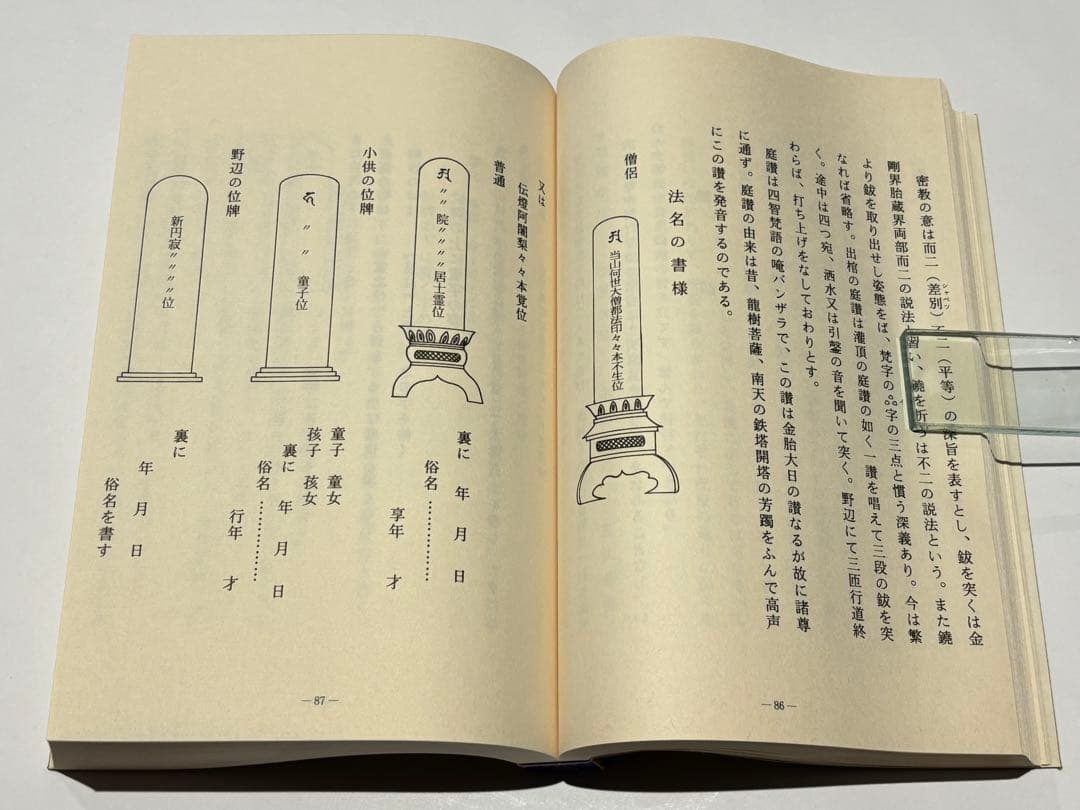 密教の意は而二（差別）不二（平等）の深旨を表すとし、鈸を突くは金
シャベツ
剛界胎蔵界両部而二の説法と習い、鐃を折るは不二の説法という。また鐃
より鈸を取り出せし姿態をば、梵字の字の三点と慣う深義あり。今は繁
なれば省略す。出棺の庭讃は灌頂の庭讃の如く一讃を唱えて三段の鈸を突
く。途中は四つ宛、洒水又は引鏧の音を聞いて突く。野辺にて三匝行道終
わらば、打ち上げをなしておわりとす。
庭讃は四智梵語の唵バンザラで、この讃は金胎大日の讃なるが故に諸尊
に通ず。庭讃の由来は昔、龍樹菩薩、南天の鉄塔開塔の芳躅をふんで高声
にこの讃を発音するのである。
法名の書様
僧侶
当山何世大僧都法印々々本不生位
―86―
又は
伝燈阿闍梨々々本覚位
普通
〃〃院〃〃〃〃居士霊位
裏に　年　月　日
俗名…………………
享年　才
小供の位牌
〃　〃　童子位
童子　童女
孩子　孩女
裏に　年　月　日
俗名…………………
行年　才
野辺の位牌
新円寂〃〃〃〃位
裏に
年　月　日
俗名を書す
―87―